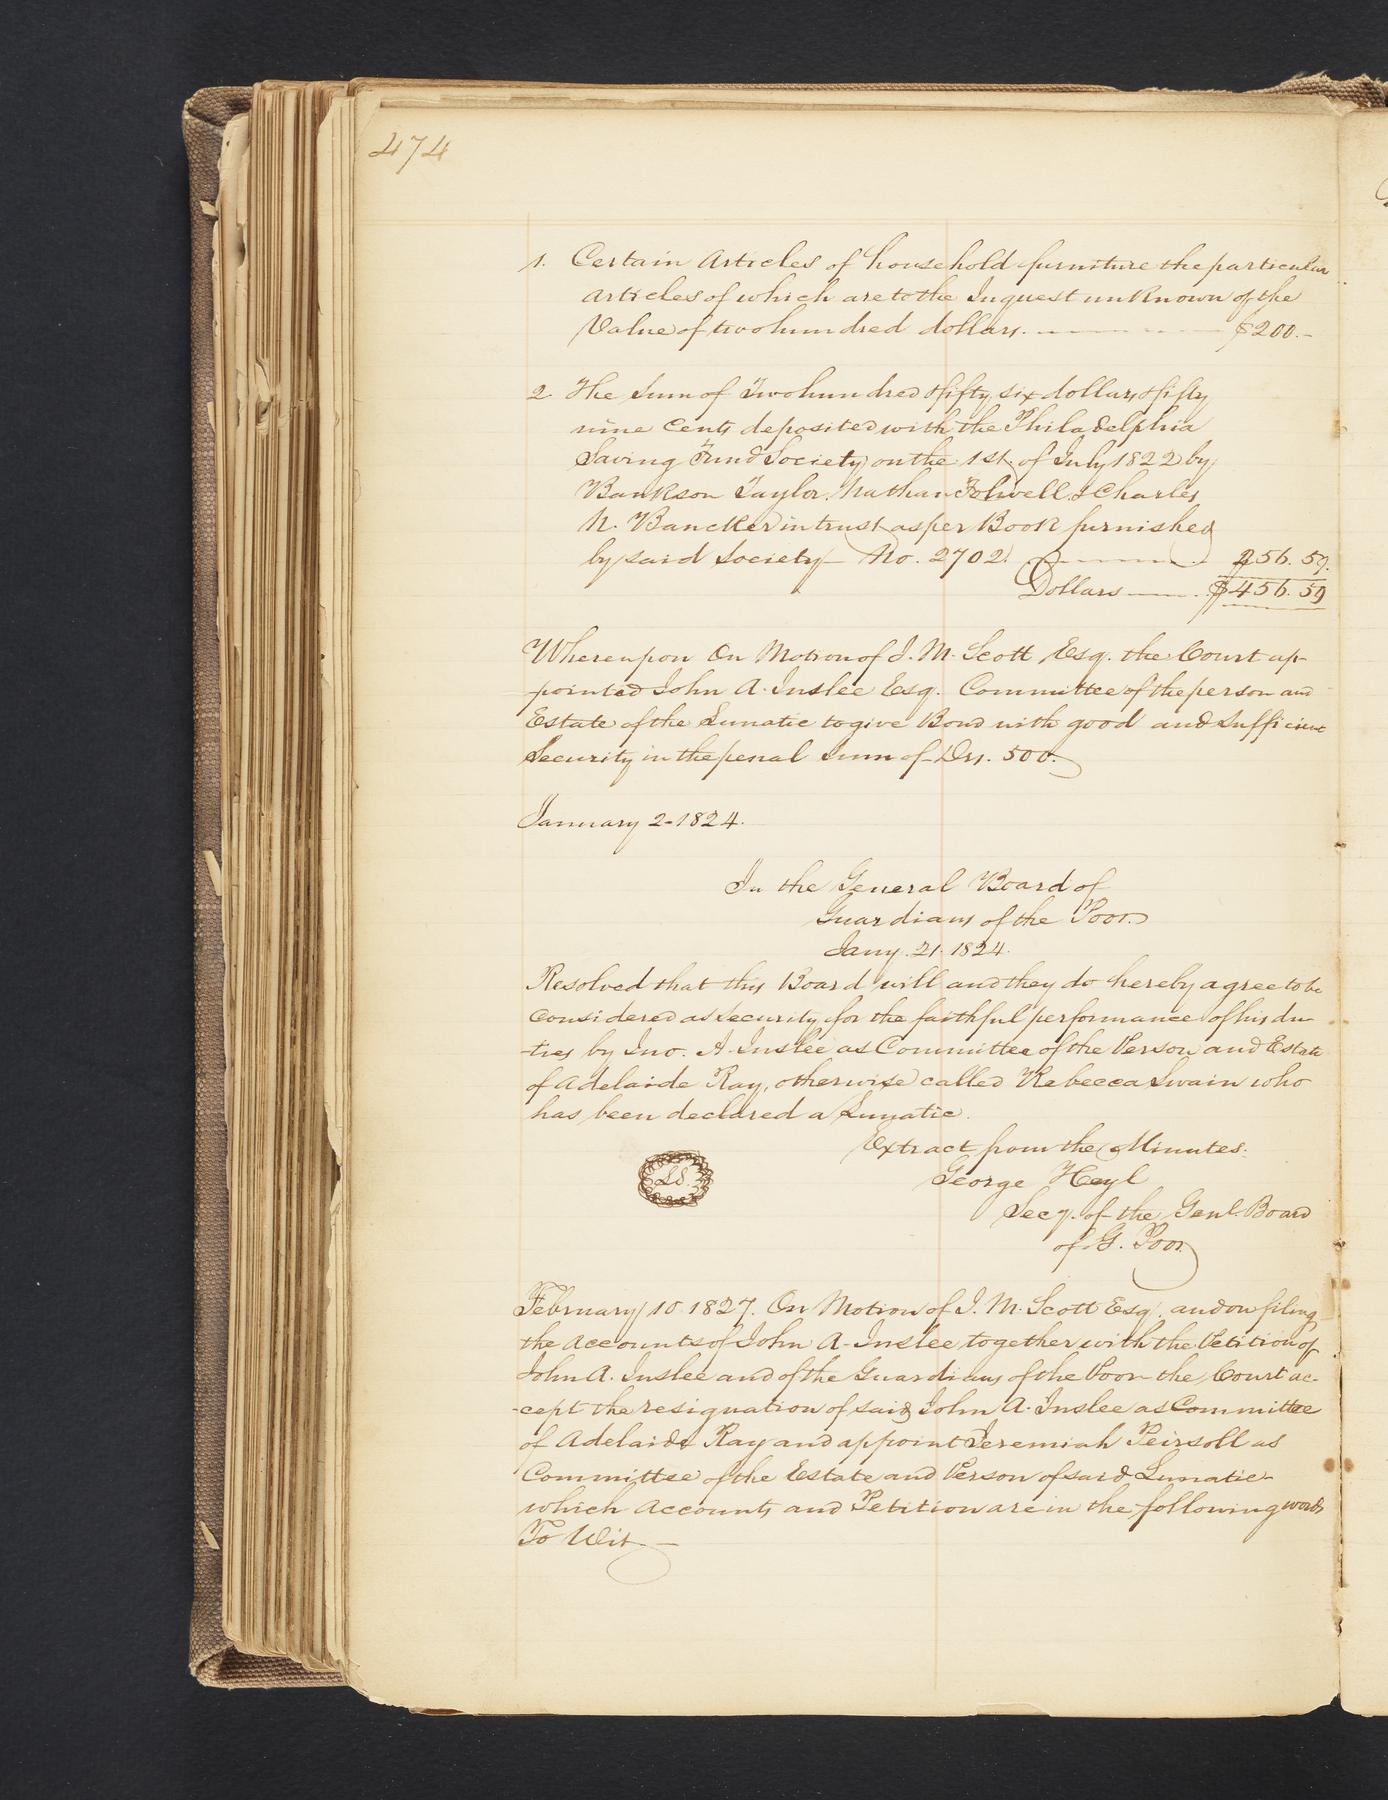 474
1. Certain Articles of household furniture the particular
Articles of which are to the Inquest unknown of the
Value of two hundred dollars. $200.-
2 The Sum of Two hundred & fifty six dollars & fifty
nine Cents deposited with the Philadelphia
Saving Fund Society on the 1st. of July 1822 by
Bankson Taylor. Nathan Folwell & Charles
N. Bancker in trust as per Book furnished
by said Society - No. 2702. 256. 59.
Dollars $456. 59
Whereupon On Motion of J. M. Scott Esq. the Court ap-
pointed John A. Inslee Esq. Committee of the person and
Estate of the Lunatic to give Bond with good and Sufficient
Security in the penal Sum of Drs. 500.
January 2-1824.
In the General Board of
Guardians of the Poor.
Jany. 21. 1824.
Resolved that this Board will and they do hereby agree to be
considered as security for the faithful performance of his du-
-ties by Jno. A. Inslee as Committee of the Person and Estate
of Adelaide Ray, otherwise called Rebecca Swain who
has been declared a Lunatic.
Extract from the Minutes.
L.S.
George Heyl
Secy. of the Genl. Board
of G. Poor
February 10 1827. On Motion of J. M. Scott Esq. and on filing
the accounts of John A. Inslee together with the Petition of
John A. Inslee and of the Guardians of the Poor the Court ac-
-cept the resignation of said John A. Inslee as Committee
of Adelaide Ray and appoint Jeremiah Peirsoll as
Committee of the Estate and Person of said Lunatic -
which Accounts and Petition are in the following words
To Wit